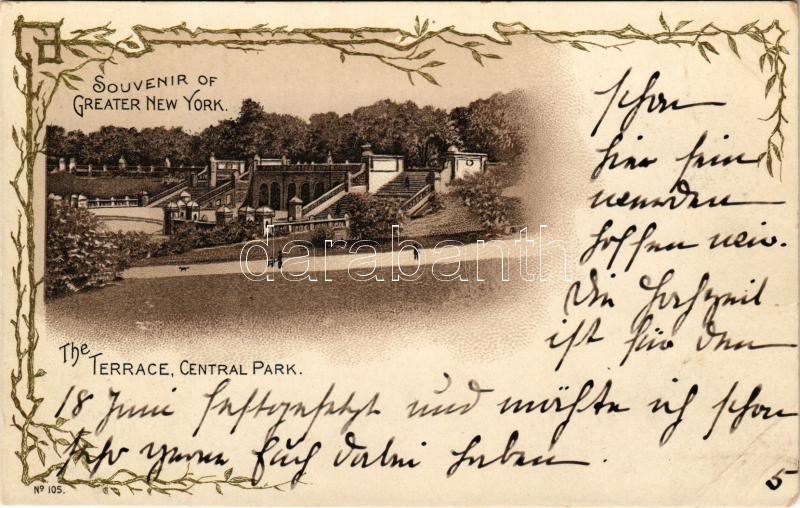 SOUVENIR OF
GREATER NEW YORK.
schon
hier sein
werden
hoffen wir.
Die Hochzeit
ist für den
The
TERRACE, CENTRAL PARK.
18 Juni festgesetzt und möchte ich schon
sehr gerne Euch dabei haben.
Nº 105.
5
darabanth